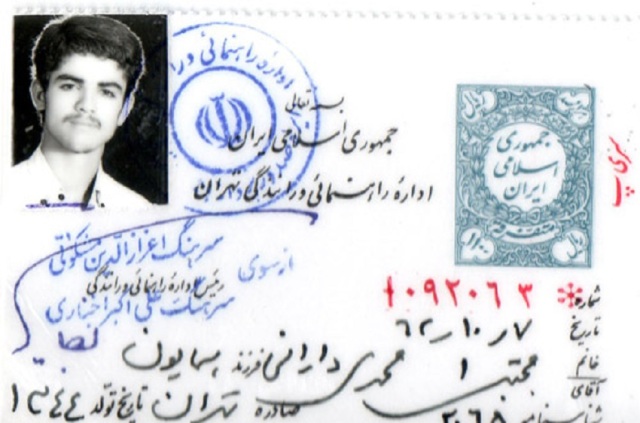 بسمه تعالی
جمهوری اسلامی ایران
اداره راهنمائی و رانندگی تهران
اداره راهنمائی و را
جمهوری
اسلامی
ایران
ریال
سری پ
از سوی سرهنگ اعزازالدین
رئیس اداره راهنمائی و رانندگی
سرهنگ علی اکبر اخباری
شماره ۱۰۹۲۰۶۳
تاریخ ۷ / ۱۰ / ۶۲
خانم
آقای مجتبی محمدی دارانی فرزند همایون
صادره تهران تاریخ تولد ۱۳۴۴